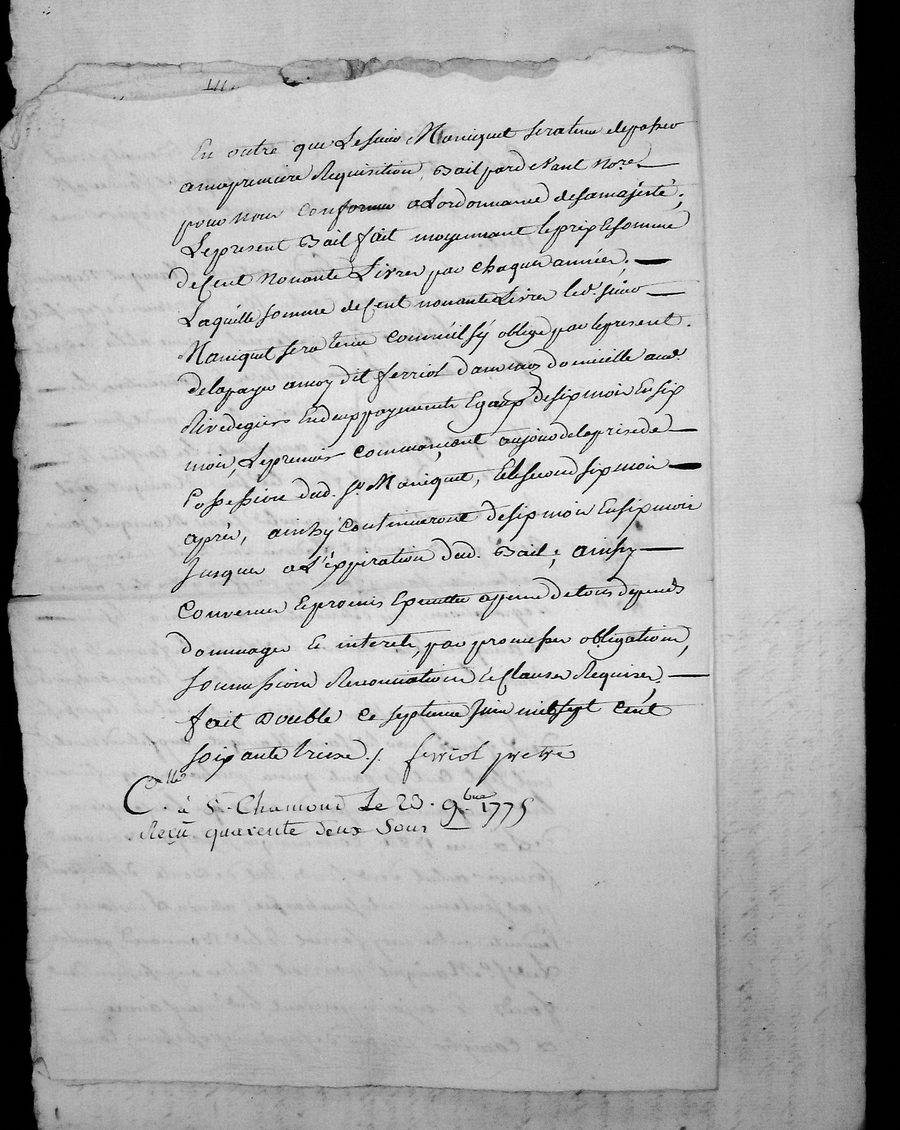 En outre que Le sieur Maniquet sera tenu de passer
a ma premiere Requisition, Bail pardevant Nore.
pour nous conformer a Lordonnance de sa majesté;
Le present Bail fait moyennant le prix et somme
de Cent Nonante Livres par chaque année;
Laquelle somme de Cent nonante Livres led. sieur
Maniquet sera tenu comme il s'y oblige par le present
de la payer a moy dit ferriol dans mon domicille aud.
Rivedegier En deux payements Egaux de six mois En six
mois, Le premier commançant au jour de la prise de
Possession dud. sr. Maniquet, et le second six mois
apres, ainsy Continueront de six mois En six mois
Jusques a L'expiration dud. Bail; ainsy
Convenu et promis Executter a peine de tous depends
Dommages et interets, par promesses obligations,
soumissions Renonciations et Clauses Requises,
fait Double ce septieme Juin mil sept cent
soixante treize /. ferriol pretre
C.elle à St. Chamond Le 23. 9.bre 1775
Reçu quarente deux Sous